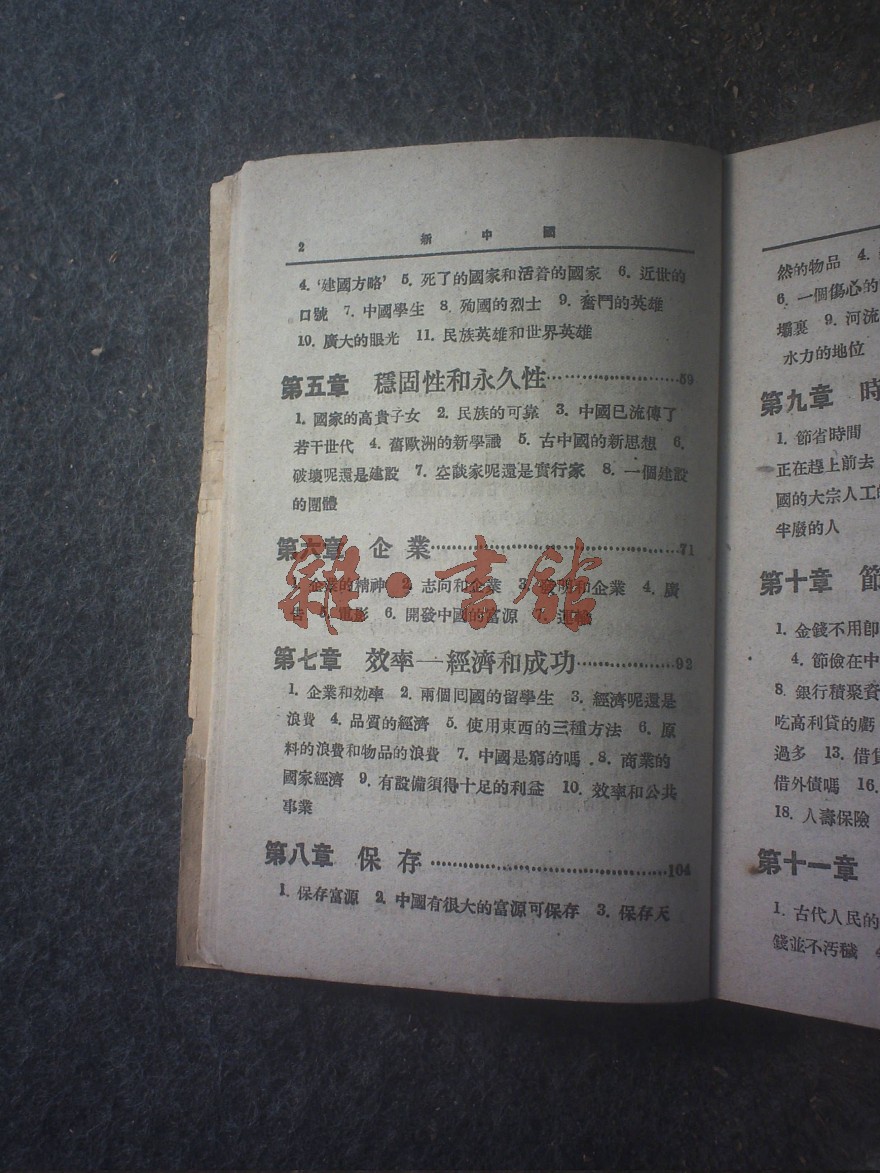 2 新中國
4. '建國方略' 5. 死了的國家和活着的國家 6. 近世的
口號 7. 中國學生 8. 殉國的烈士 9. 奮鬥的英雄
10. 廣大的眼光 11. 民族英雄和世界英雄
第五章 穩固性和永久性 59
1. 國家的高貴子女 2. 民族的可靠 3. 中國已流傳了
若干世代 4. 舊歐洲的新學識 5. 古中國的新思想 6.
破壞呢還是建設 7. 空談家呢還是實行家 8. 一個建設
的團體
第六章 企業 71
1. 企業的精神 2. 志向和企業 3. 發明和企業 4. 廣
告 5. 電影 6. 開發中國的富源 7. 運輸
第七章 效率—經濟和成功 92
1. 企業和効率 2. 兩個囘國的留學生 3. 經濟呢還是
浪費 4. 品質的經濟 5. 使用東西的三種方法 6. 原
料的浪費和物品的浪費 7. 中國是窮的嗎 8. 商業的
國家經濟 9. 有設備須得十足的利益 10. 效率和公共
事業
第八章 保存 104
1. 保存富源 2. 中國有很大的富源可保存 3. 保存天
雜·書館
然的物品 4.
6. 一個傷心的
壩裏 9. 河流
水力的地位
第九章 時
1. 節省時間
正在趕上前去
國的大宗人工的
半廢的人
第十章 節
1. 金錢不用卽
4. 節儉在中
8. 銀行積聚資
吃高利貸的虧
過多 13. 借貸
借外債嗎 16.
18. 人壽保險
第十一章
1. 古代人民的
錢並不汚穢